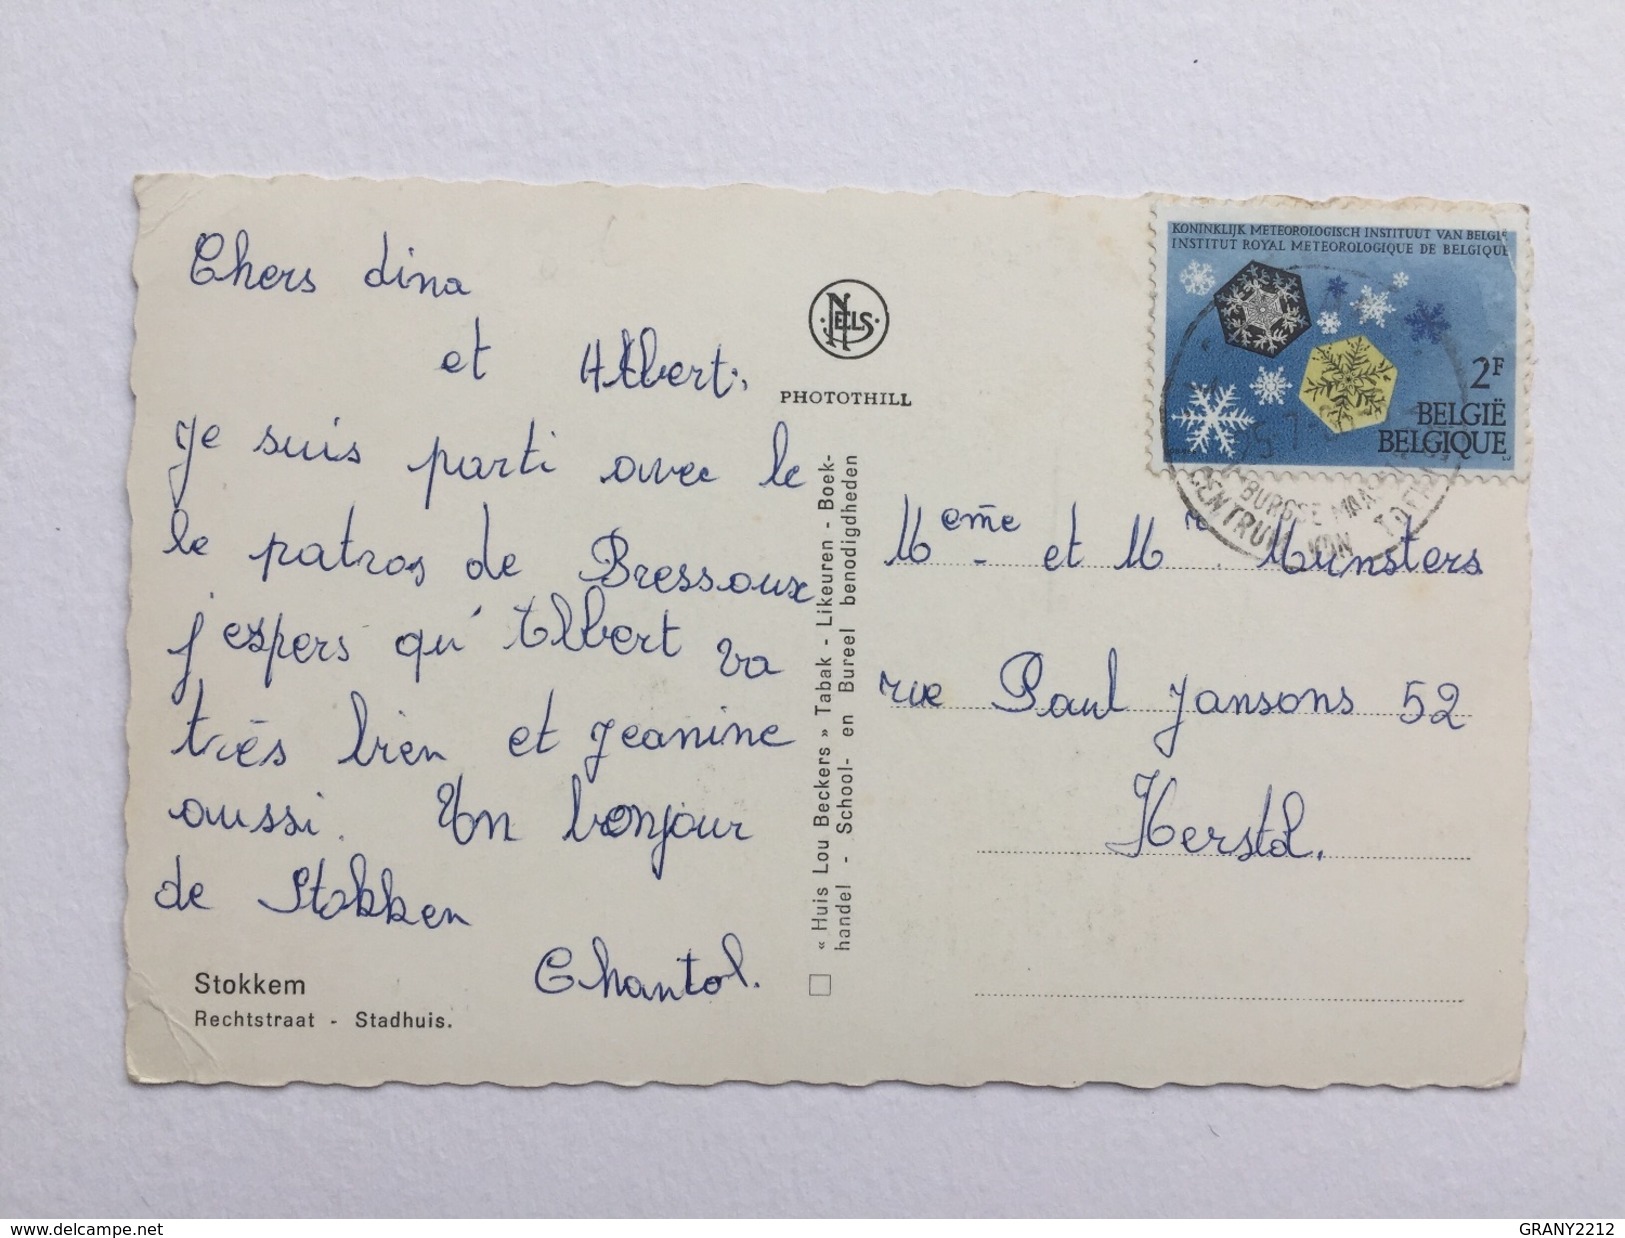 Chers dina
et Albert.
Je suis parti avec le
le patros de Bressoux
j'espers qu'Albert va
très bien et Jeanine
aussi. Un bonjour
de Stokken
Chantal.
Stokkem
Rechtstraat - Stadhuis.
NELS
PHOTOTHILL
« Huis Lou Beckers » Tabak - Likeuren - Boek-
handel - School- en Bureel benodigdheden
KONINKLIJK METEOROLOGISCH INSTITUUT VAN BELGIË
INSTITUT ROYAL METEOROLOGIQUE DE BELGIQUE
2F
BELGIË
BELGIQUE
BURGSE MAAS
CENTRUM VAN
Meme et Mr Munsters
rue Paul Jansons 52
Herstal.
delcampe.net
GRANY2212